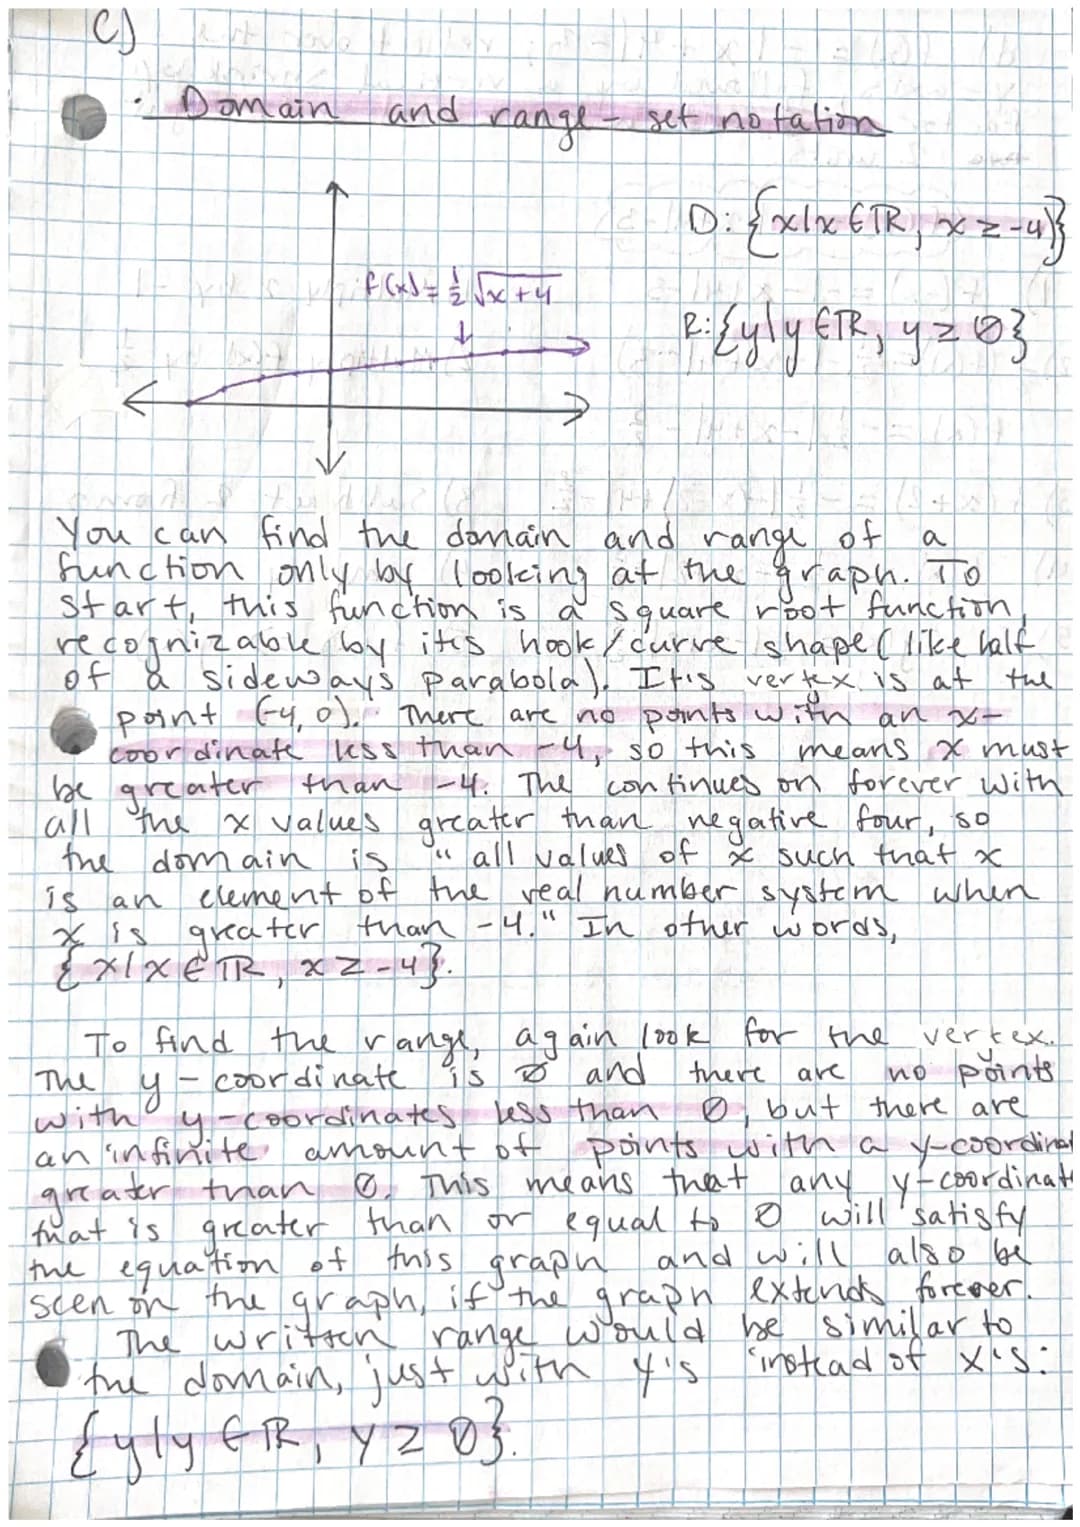 c)
Domain and range - set notation
D: {x|x∈ℝ, x≥-4}
f(x)=½√x+4
R: {y|y∈ℝ, y≥0}
You can find the domain and range of a
function only by looking at the graph. To
start, this function is a square root function,
recognizable by it's hook/curve shape (like half
of a sideways parabola). It's vertex is at the
point (-4, 0). There are no points with an x-
coordinate less than -4, so this means x must
be greater than -4. The continues on forever with
all the x values greater than negative four, so
the domain is "all values of x such that x
is an element of the real number system when
x is greater than -4." In other words,
{x|x∈ℝ, x≥-4}.
To find the range, again look for the vertex.
The y-coordinate is 0 and there are no points
with y-coordinates less than 0, but there are
an infinite amount of points with a y-coordinat
greater than 0. This means that any y-coordinate
that is greater than or equal to 0 will satisfy
the equation of this graph and will also be
seen on the graph, if the graph extends forever.
The written range would be similar to
the domain, just with y's instead of x's:
{y|y∈ℝ, y≥0}.